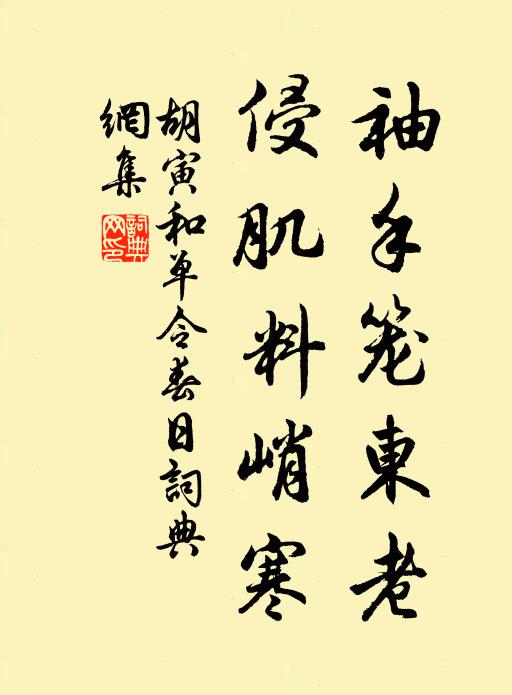 袖手笼東老
侵肌料峭寒
胡寅和单令春日詞典
網集
詞典网印